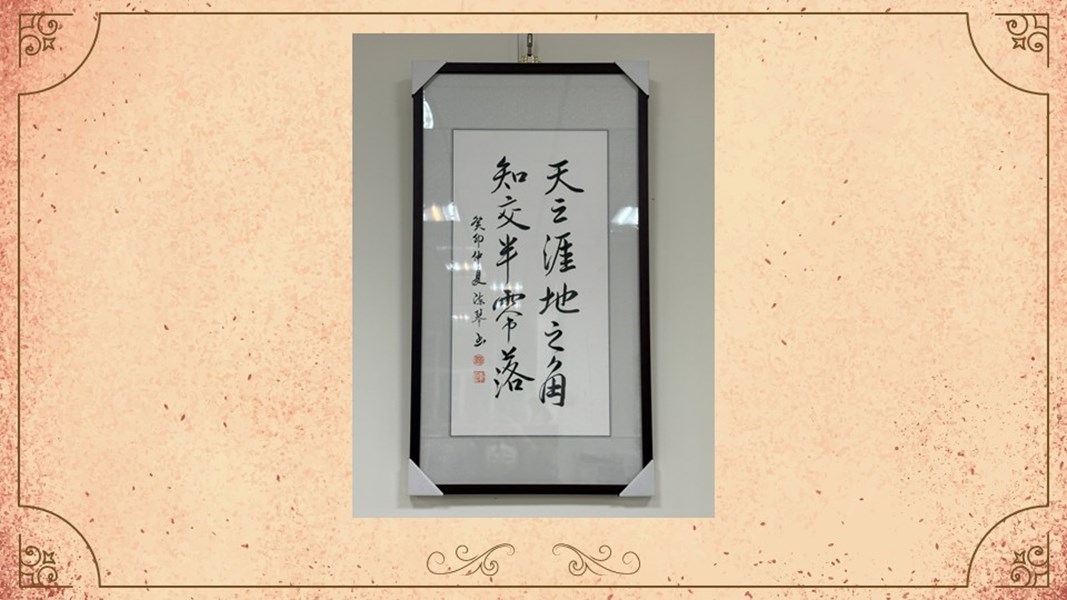 天之涯地之角
知交半零落
癸卯仲夏 琴书